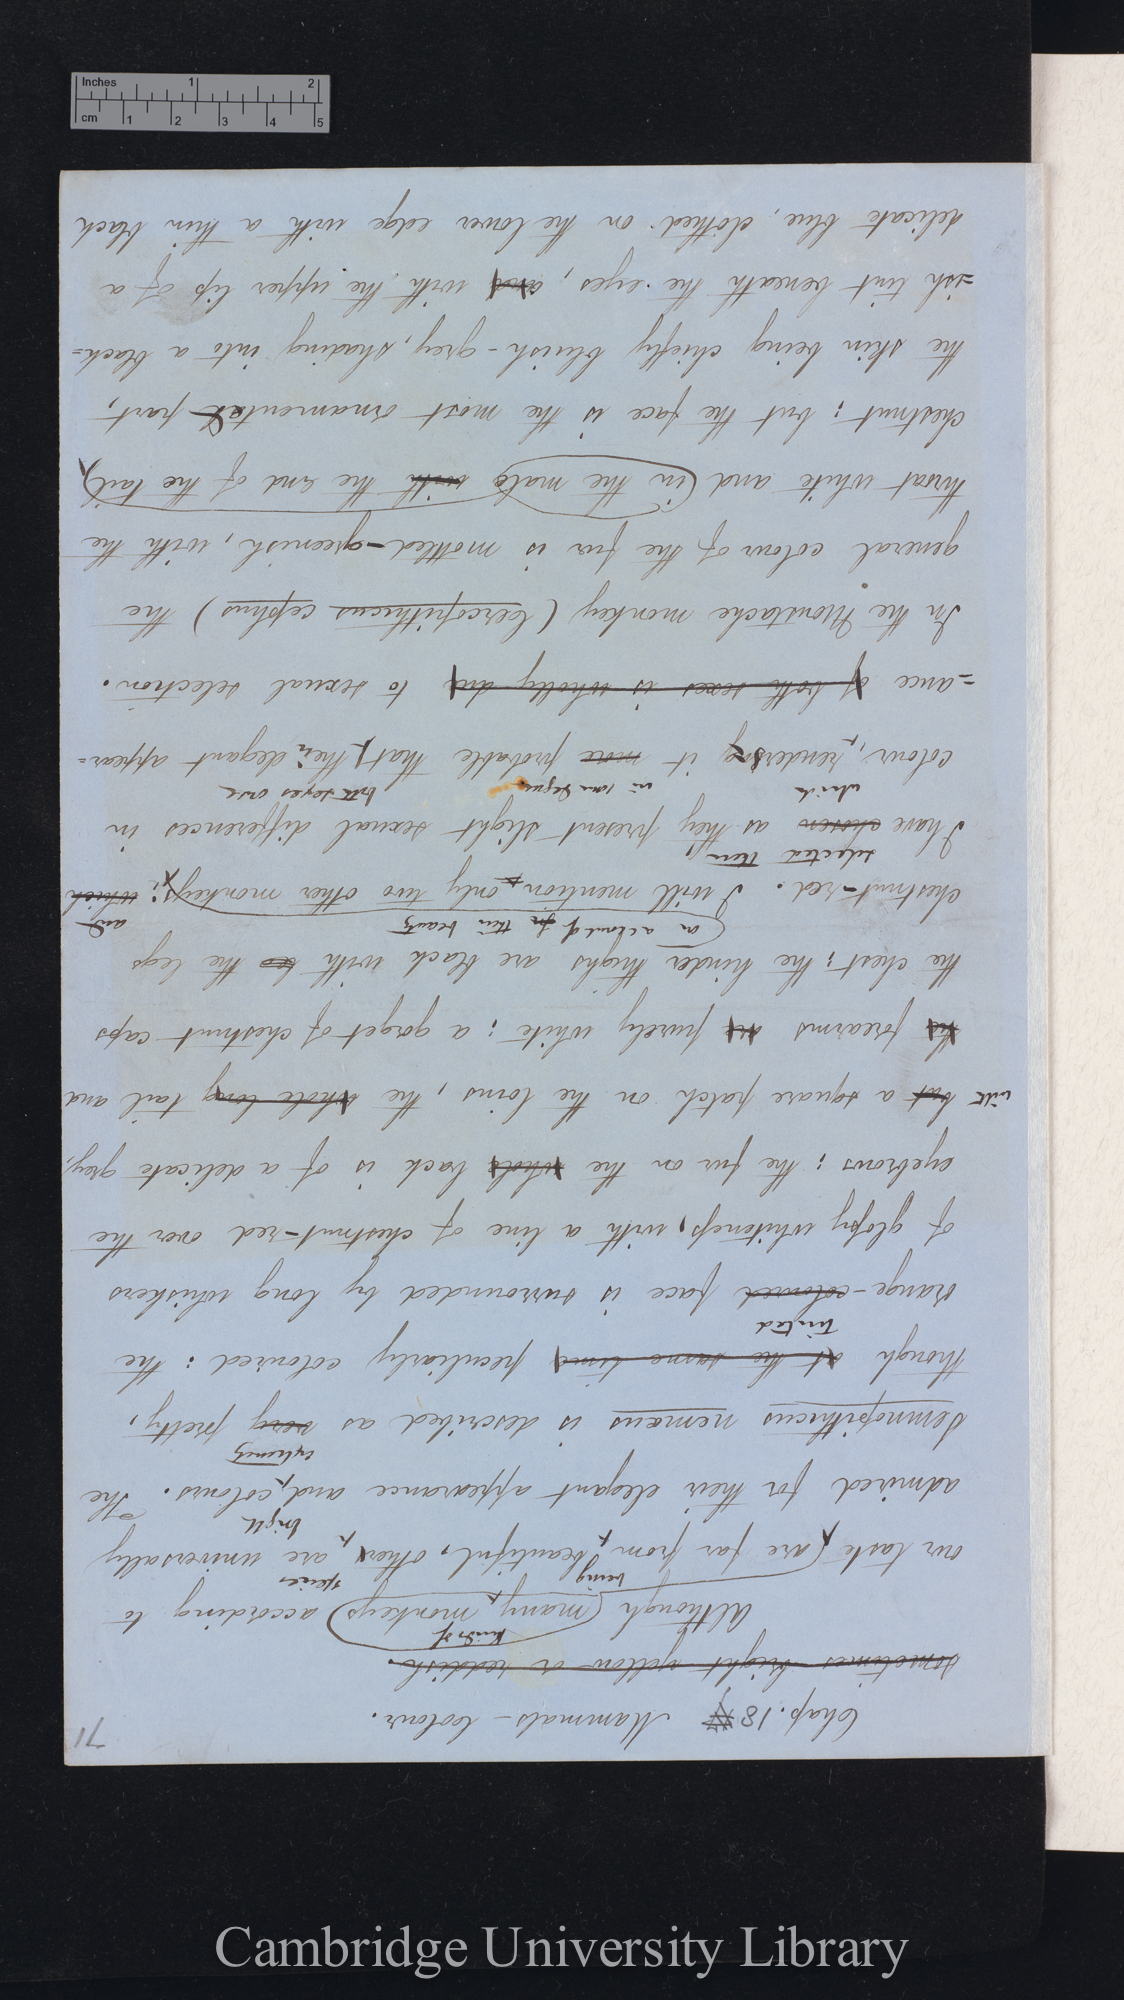 Inches 1 2
cm 1 2 3 4 5
71
Chap. 18 Mammals - Colour.
sometimes bright yellow or reddish.
kinds of
Although (many monkeys) according to
being species
our taste (are far from beautiful, other are universally
bright
admired for their elegant appearance and colours. The
extremely
Semnopithecus nemæus is described as very pretty,
though at the same time peculiarly coloured: the
tinted
orange-coloured face is surrounded by long whiskers
of glossy whiteness, with a line of chestnut-red over the
eyebrows: the fur on the whole back is of a delicate grey,
with but a square patch on the loins, the whole long tail and
the forearms purely white: a gorget of chestnut caps
the chest; the hinder thighs are black with the legs
on account of for their beauty and
chestnut-red. I will mention only two other monkeys; which
selected them,
I have chosen as they present slight sexual differences in
which in some degree both sexes owe
colour, rendering it more probable that their elegant appear=
=ance of both sexes is wholly due to sexual selection.
In the Moustache monkey (Cercopithecus cephus) the
general colour of the fur is mottled-greenish, with the
throat white and (in the male with the end of the tail)
chestnut: but the face is the most ornamental part,
the skin being chiefly bluish-grey, shading into a black=
=ish tint beneath the eyes, and with the upper lip of a
delicate blue, clothed on the lower edge with a thin black
Cambridge University Library